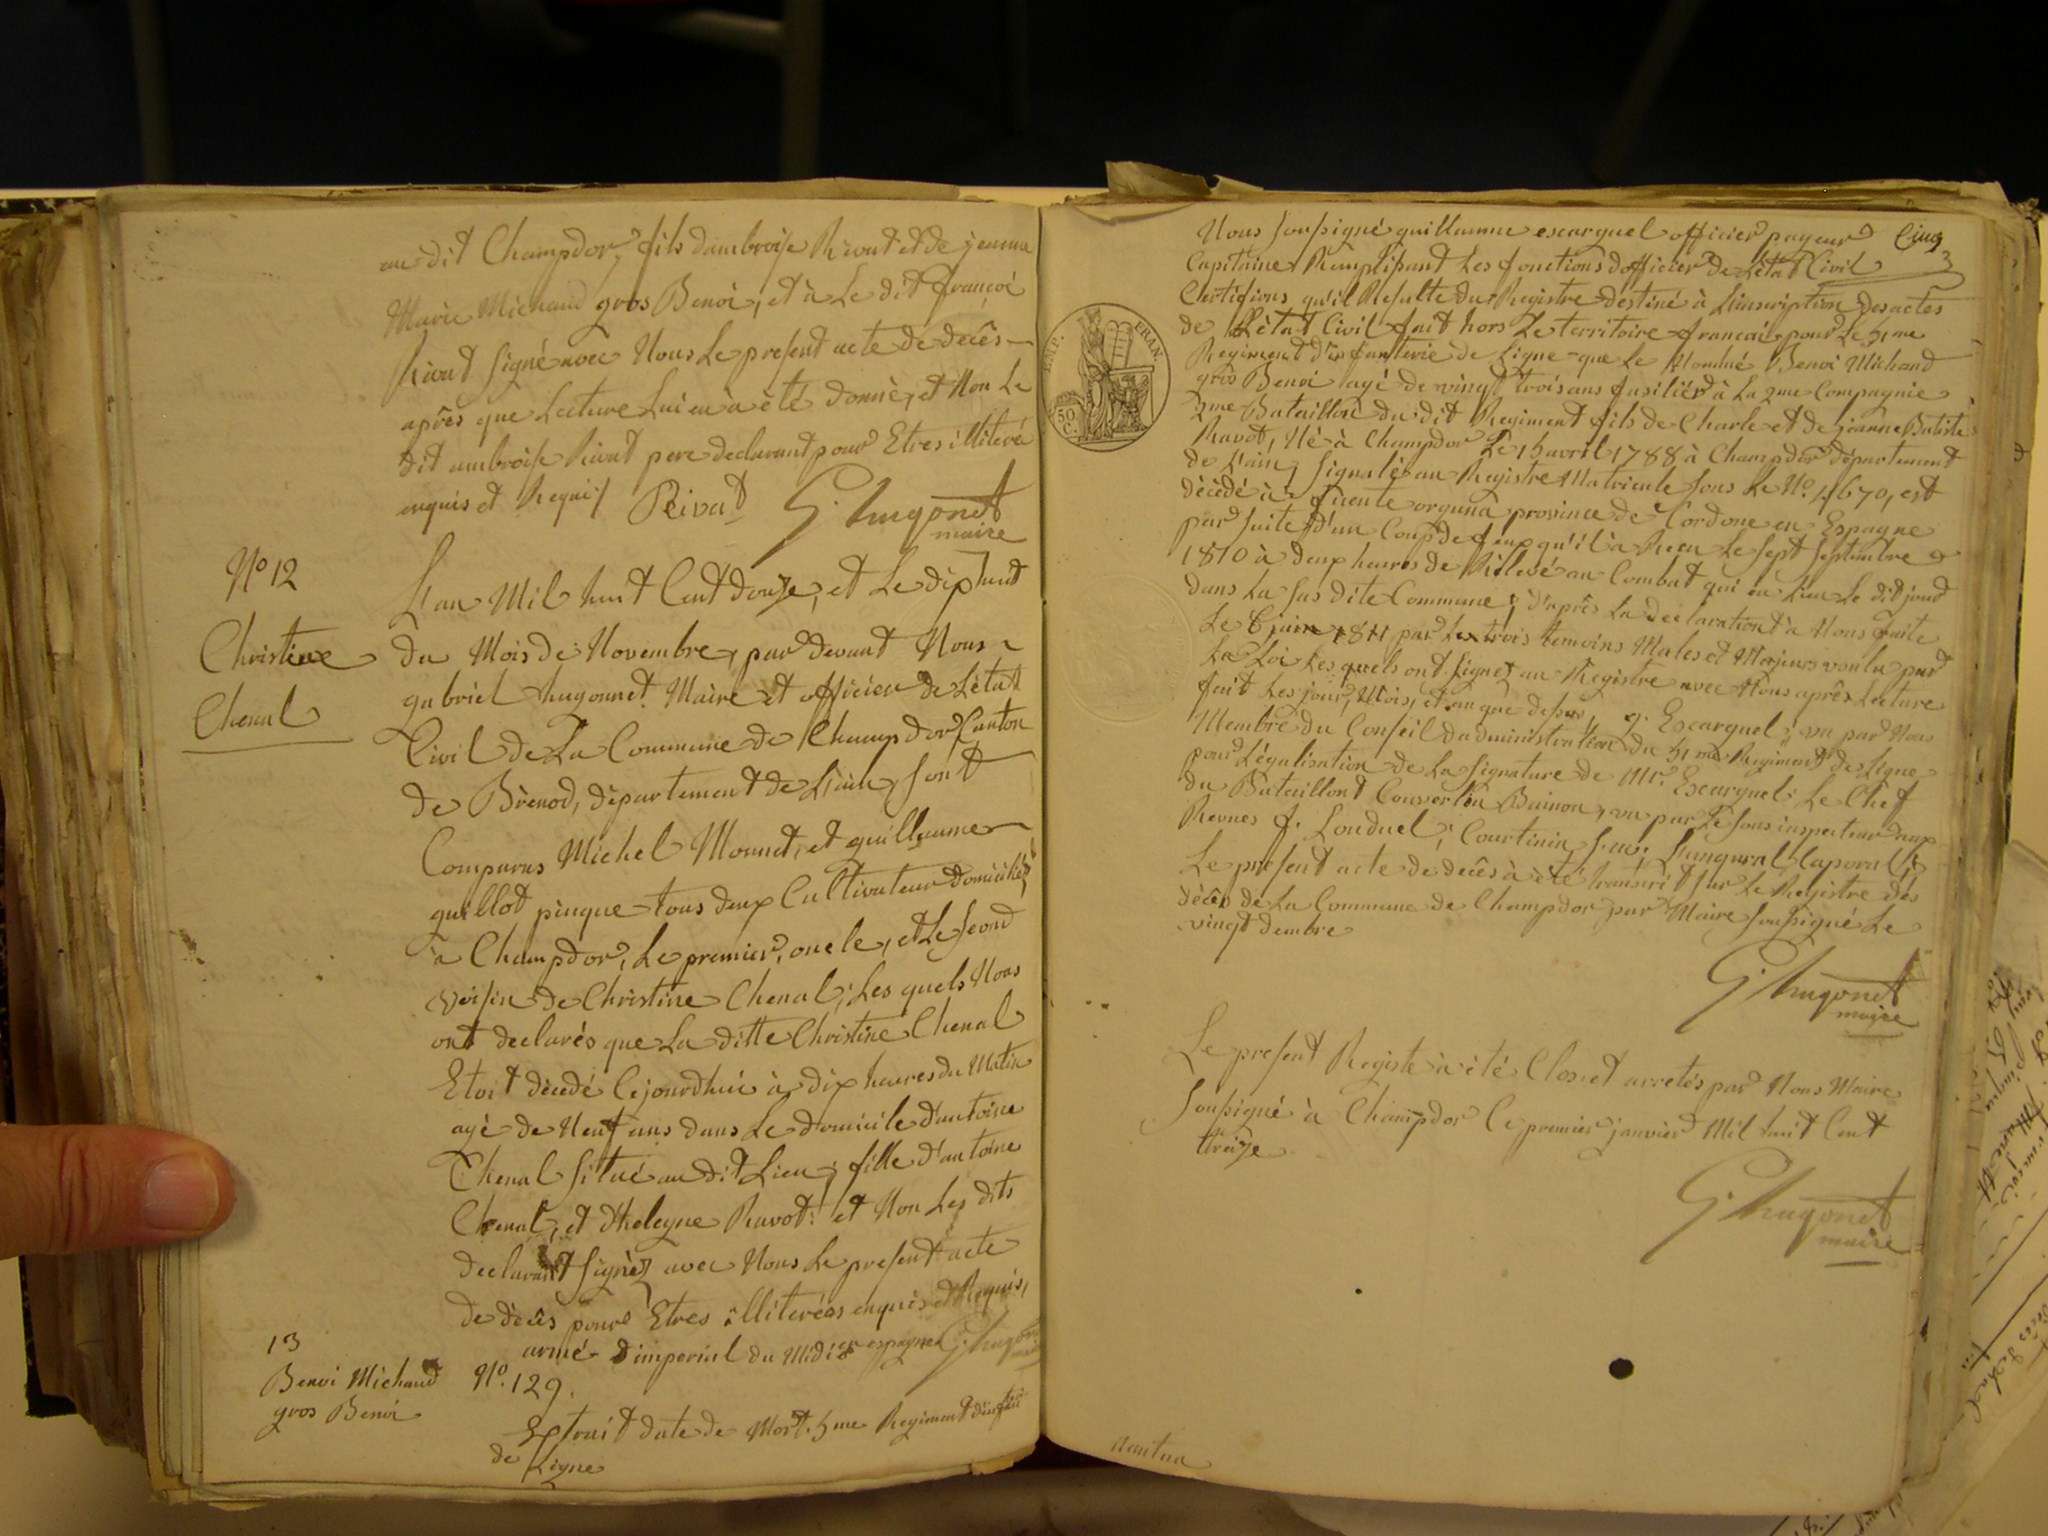 au dit Champdor, fils dambroise Rivat et de jeanne
Marie Michaud gros Benoi, et à Le dit françoi
Rivat Signé avec Nous Le présent acte de decês
après que Lecture Lui en à été donnée, et Non Le
dit ambroise Rivat pere declarant pour Etres illiteré
enquis et Requis/ Rivat G. hugonet
maire
No 12
Christine
Chenal
L'an Mil huit Cent douze, et Le dix huit
du Mois de Novembre, par devant Nous
gabriel hugonnet Maire et officier de Létat
Civil de La Commune de Champdor Canton
de Brènod, département de L'ain, sont
Comparus Michel Monnet, et guillaume
guillot pinque tous deux Cultivateur domiciliés
à Champdor, Le premier, oncle, et Le second
voisin de Christine Chenal; Les quels Nous
ont declarés que La ditte Christine Chenal
Etoit dècedé Cejourdhui à dix heures du Matin
agé de Neuf ans dans Le domicile d'antoine
Chenal Situé au dit Lieu; fille d'antoine
Chenal, et dheleyne Ravot: et Non Les dits
declarant Signéz avec Nous Le present acte
de dècês pour Etres illiterées enquis et Requis,
armé d'imperial du Midi espagne G. hugonet
13
Benoi Michaud
gros Benoi
No. 129.
Extrait date de Mort. 5me Regiment d'infterie
de Ligne
Cinq
Nous soussigné guillaume escarguel officier payeur
Capitaine Remplissant Les fonctions dofficier de L'état Civil
Certifions qu'il Resulte du Registre destiné à L'inscription des actes
de L'état Civil fait hors Le territoire francais pour Le 51me
Regiment d'infanterie de Ligne que Le Nommé Benoi Michaud
gros Benoi agé de vingt trois ans fusilier à La 2me Compagnie
2me Bataillon du dit Regiment fils de Charle et de jeanne Batiste
Ravot, Né à Champdor Le 15 avril 1788 à Champdor département
de L'ain, Signalé au Registre Matricule sous Le No. 4670, est
décédé à fuente orguna province de Cordone en Espagne
par suite d'un Coup de feux qu'il à Recu Le sept septembre
1810 à deux heures de Relevé au Combat qui eu Lieu Le dit jour
dans La sus dite Commune; d'après La declaration à Nous faite
Le 6 juin 1811 par Les trois temoins Males et Majeurs voulu par
La Loi Les quels ont signez au Registre avec Nous après Lecture
fait Les jour, Mois, et an que dessus, g. Escarguel; vu par Nous
Membre du Conseil dadministration du 51me Regiment de Ligne
pour Légalisation de La signature de Mr. Escarguel: Le Chef
du Bataillont Bainon, vu par Le sous inspecteur aux
Revues f. Londuel; Courtinin Caporal,
Le present acte de decês à été transcrit sur Le Registre des
décês de La Commune de Champdor par Maire soussigné Le
vingt dembre
G. hugonet
maire
EMP. FRAN.
50 C.
Le present Registe à été Clos et arretés par Nous Maire
Soussigné à Champdor Ce premier janvier Mil huit Cent
treize
G. hugonet
maire
Nantua